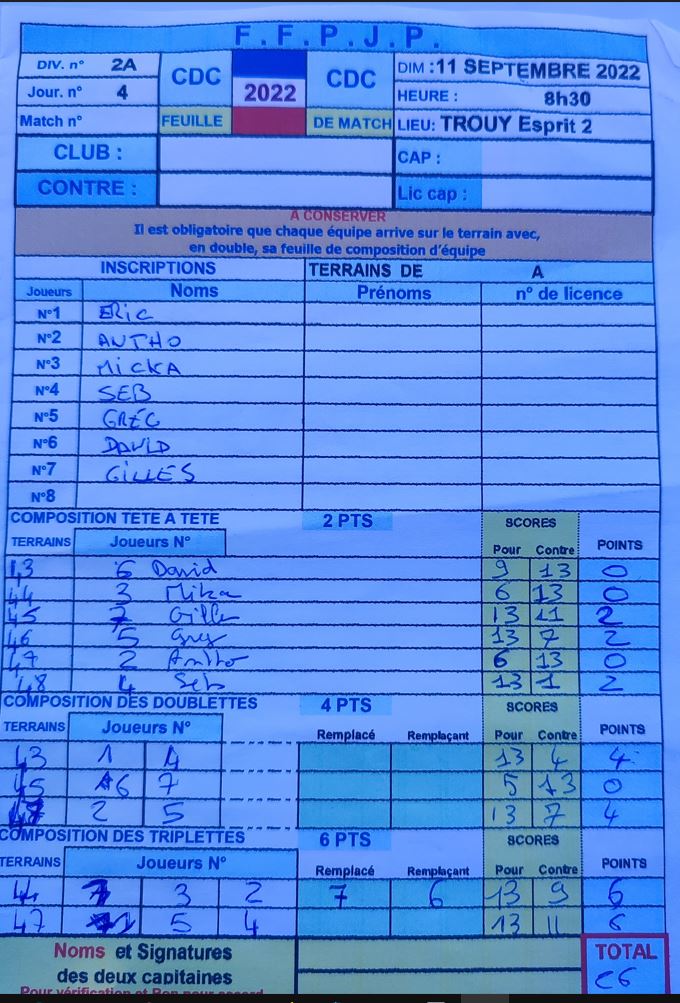 F.F.P.J.P.
DIV. n° 2A CDC CDC DIM : 11 SEPTEMBRE 2022
Jour. n° 4 2022 HEURE : 8h30
Match n° FEUILLE DE MATCH LIEU: TROUY Esprit 2
CLUB : CAP :
CONTRE : Lic cap :
A CONSERVER
Il est obligatoire que chaque équipe arrive sur le terrain avec,
en double, sa feuille de composition d'équipe
INSCRIPTIONS TERRAINS DE A
Joueurs Noms Prénoms n° de licence
N°1 ERIC
N°2 ANTHO
N°3 MICKA
N°4 SEB
N°5 GREG
N°6 DAVID
N°7 GILLES
N°8
COMPOSITION TETE A TETE 2 PTS SCORES
TERRAINS Joueurs N° Pour Contre POINTS
43 6 David 9 13 0
44 3 Mika 6 13 0
45 7 Gilles 13 11 2
46 5 Greg 13 7 2
47 2 Antho 6 13 0
48 4 Seb 13 1 2
COMPOSITION DES DOUBLETTES 4 PTS SCORES
TERRAINS Joueurs N° Remplacé Remplaçant Pour Contre POINTS
43 1 4 13 4 4
45 6 7 5 13 0
2 5 13 7 4
COMPOSITION DES TRIPLETTES 6 PTS SCORES
TERRAINS Joueurs N° Remplacé Remplaçant Pour Contre POINTS
44 7 3 2 7 6 13 9 6
47 1 5 4 13 11 6
Noms et Signatures TOTAL
des deux capitaines 26
Pour vérification et Bon pour accord